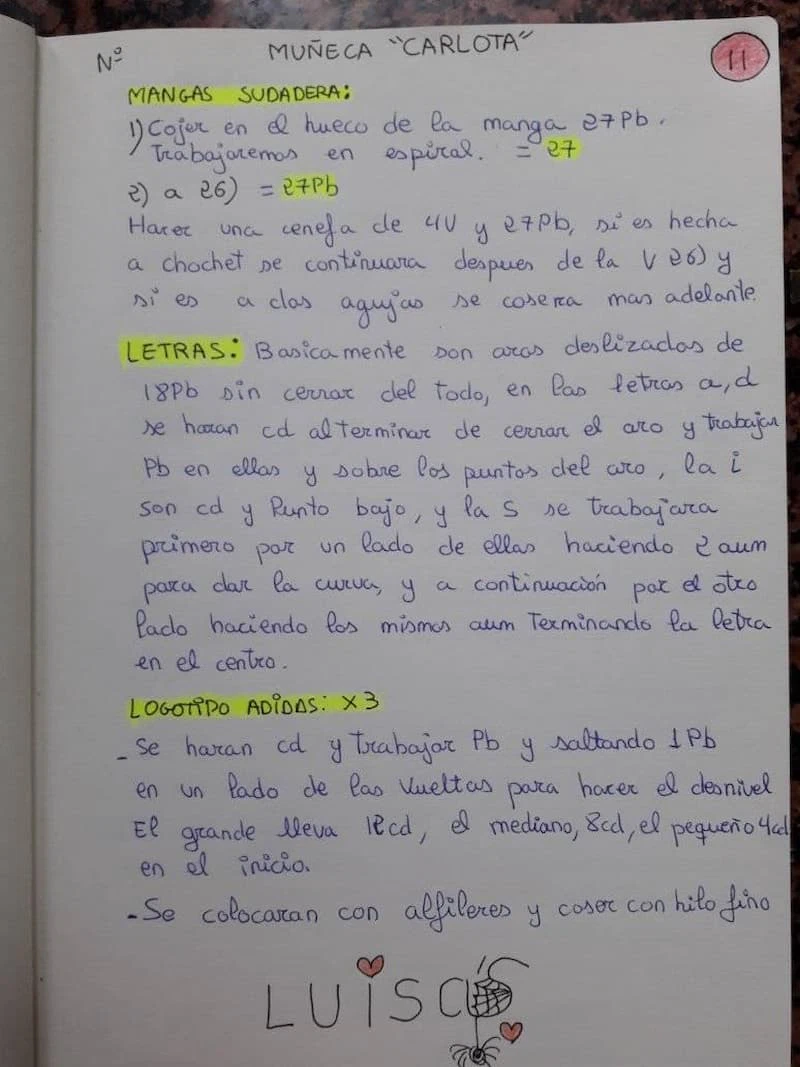 Nº
MUÑECA "CARLOTA"
11
MANGAS SUDADERA:
1) Cojer en el hueco de la manga 27Pb.
Trabajaremos en espiral. = 27
2) a 26) = 27Pb
Hacer una cenefa de 4V y 27Pb, si es hecha
a chochet se continuara despues de la V 26) y
si es a dos agujas se cosera mas adelante.
LETRAS: Basicamente son aros deslizados de
18Pb sin cerrar del todo, en las letras a, d
se haran cd al terminar de cerrar el aro y trabajar
Pb en ellas y sobre los puntos del aro, la i
son cd y Punto bajo, y la S se trabajara
primero por un lado de ellas haciendo 2 aum
para dar la curva, y a continuación por el otro
lado haciendo los mismos aum Terminando la letra
en el centro.
LOGOTIPO ADIDAS: X3
- Se haran cd y trabajar Pb y saltando 1Pb
en un lado de las vueltas para hacer el desnivel
El grande lleva 12cd, el mediano, 8cd, el pequeño 4cd
en el inicio.
- Se colocaran con alfileres y coser con hilo fino